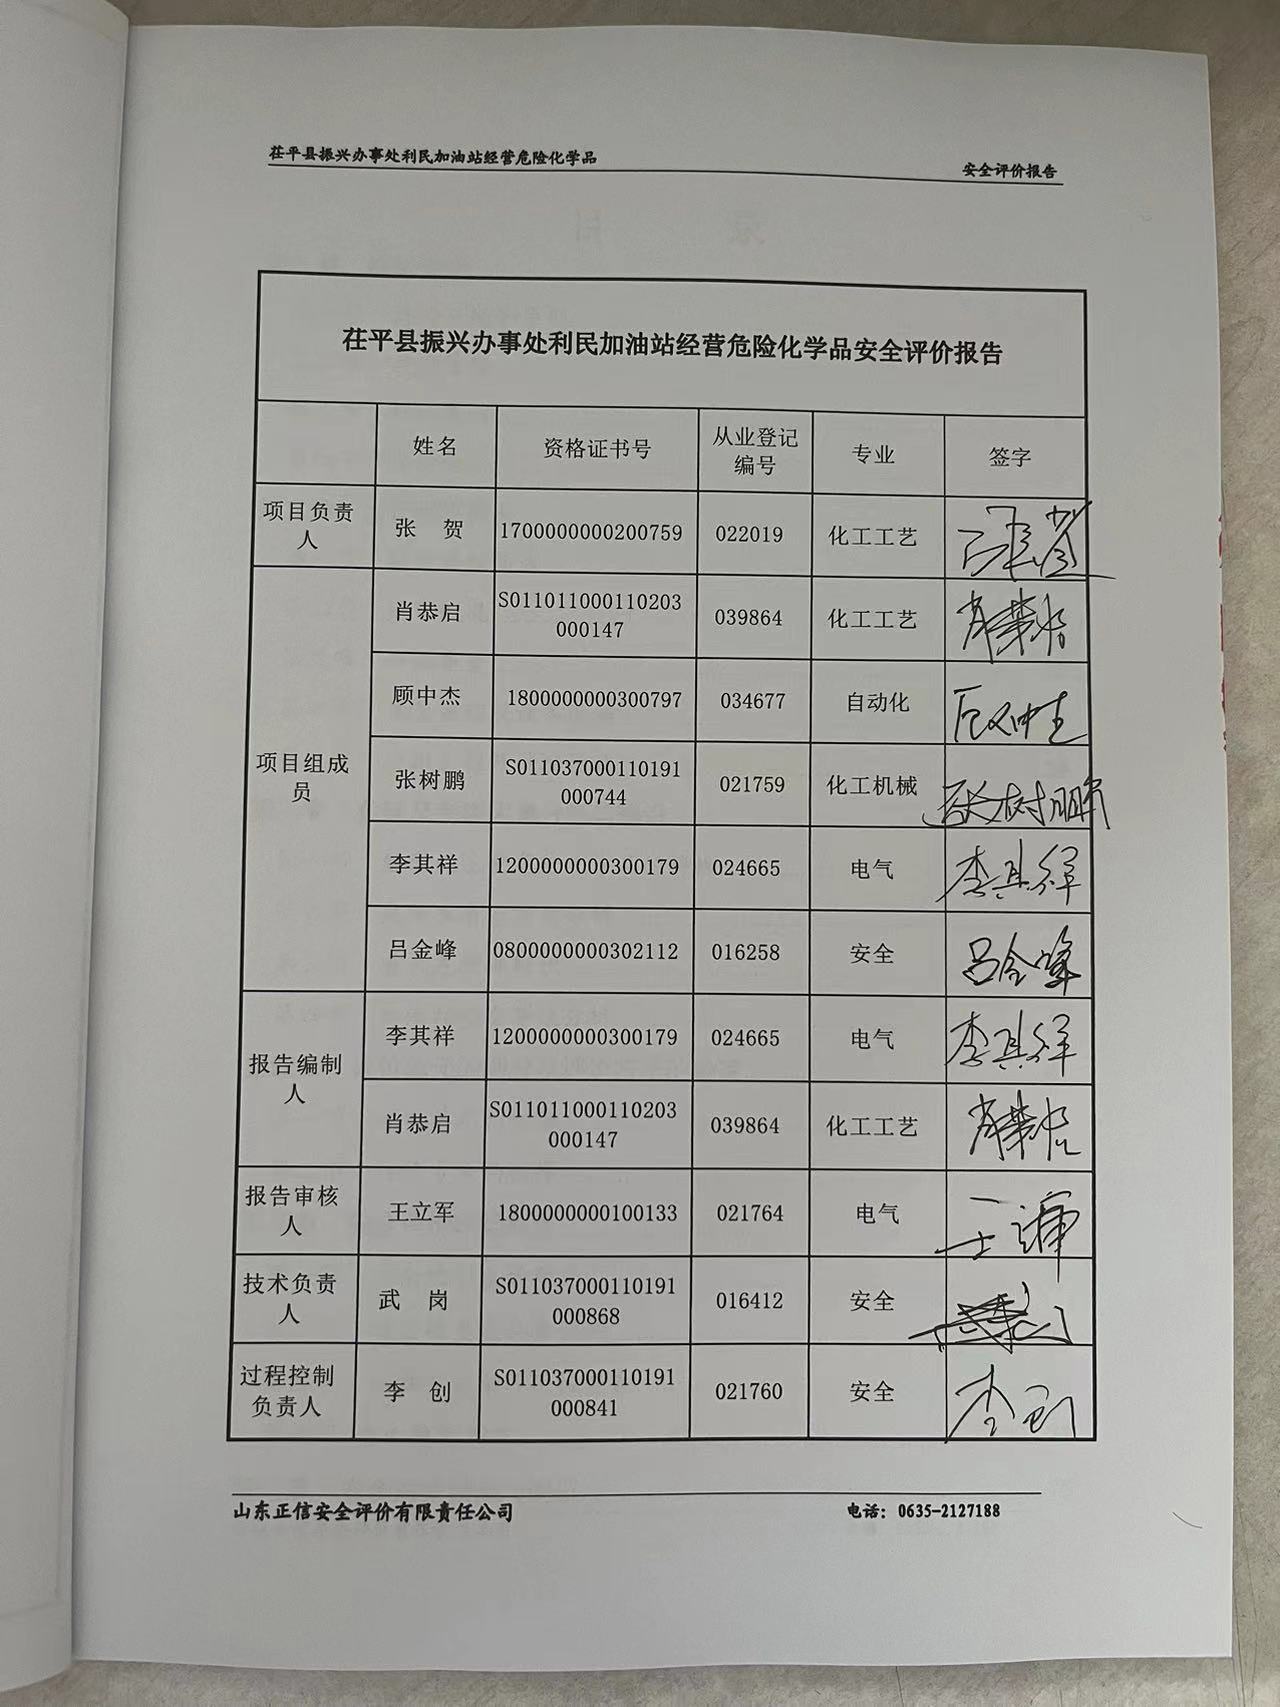 茌平县振兴办事处利民加油站经营危险化学品
安全评价报告
茌平县振兴办事处利民加油站经营危险化学品安全评价报告
姓名 资格证书号 从业登记编号 专业 签字
项目负责人 张 贺 1700000000200759 022019 化工工艺
项目组成员 肖恭启 S011011000110203000147 039864 化工工艺
顾中杰 1800000000300797 034677 自动化
张树鹏 S011037000110191000744 021759 化工机械 张树鹏
李其祥 1200000000300179 024665 电气 李其祥
吕金峰 0800000000302112 016258 安全 吕金峰
报告编制人 李其祥 1200000000300179 024665 电气 李其祥
肖恭启 S011011000110203000147 039864 化工工艺
报告审核人 王立军 1800000000100133 021764 电气
技术负责人 武 岗 S011037000110191000868 016412 安全
过程控制负责人 李 创 S011037000110191000841 021760 安全 李创
山东正信安全评价有限责任公司
电话：0635-2127188